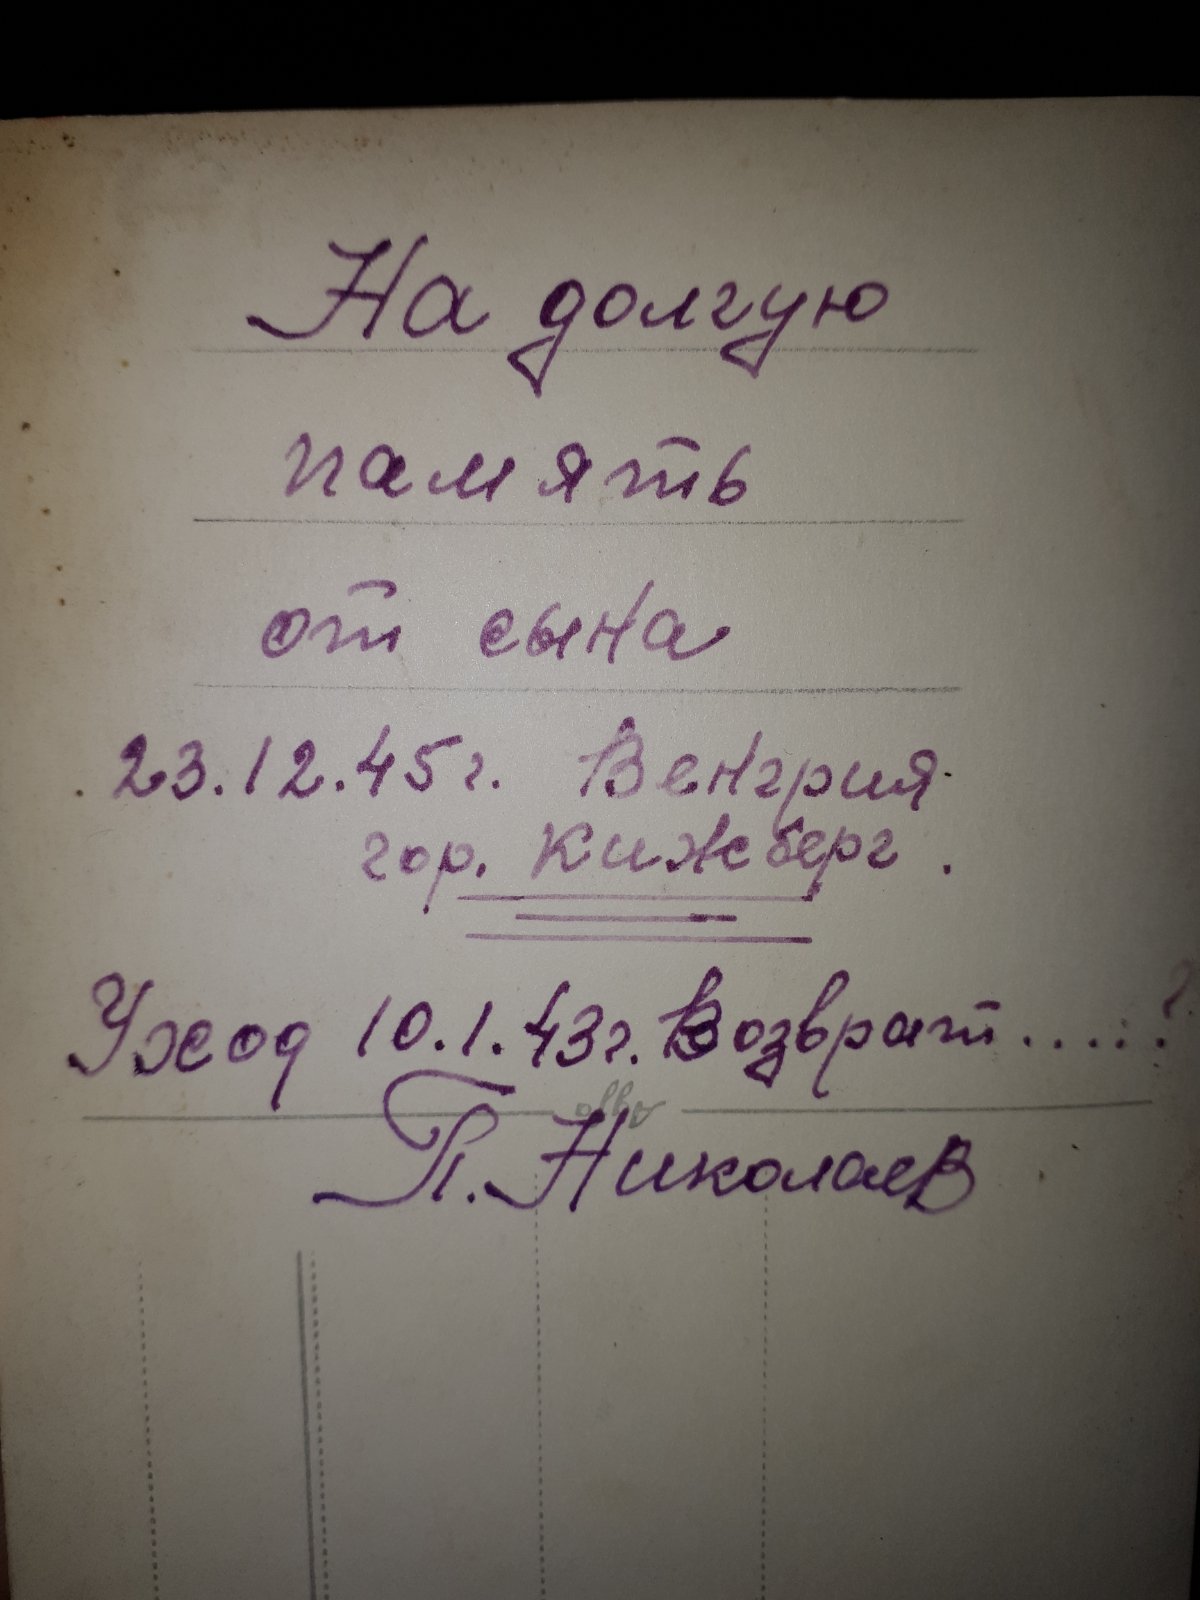 На долгую
память
от сына
23.12.45г. Венгрия.
гор. Кижберг.
Уход 10.1.43г. Возврат.....?
П. Николаев